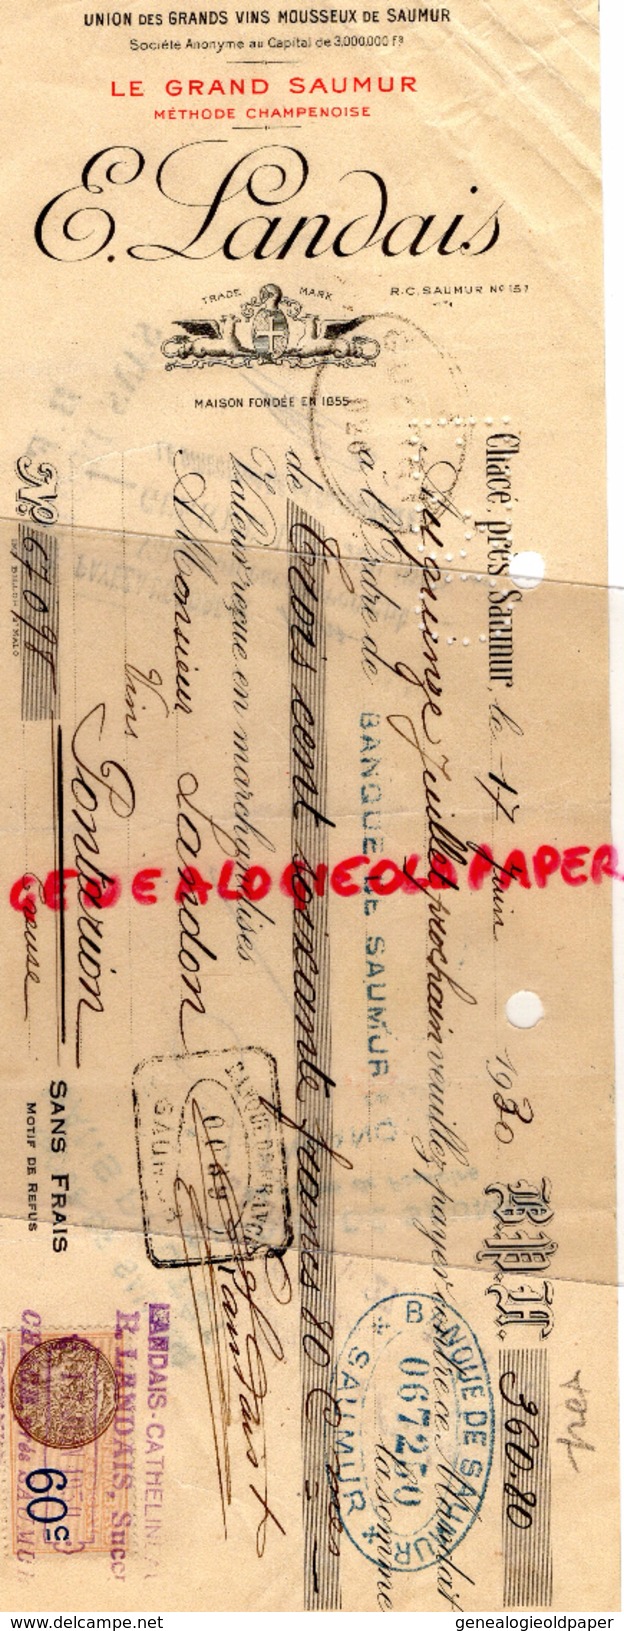 UNION DES GRANDS VINS MOUSSEUX DE SAUMUR
Société Anonyme au Capital de 3.000.000 Frs
LE GRAND SAUMUR
MÉTHODE CHAMPENOISE
E. Landais
TRADE MARK
R.C. SAUMUR No 157
MAISON FONDÉE EN 1855
Chacé, près Saumur, le 17 Juin 1930 B.P.F. 360.80
Au quinze Juillet prochain veuillez payer contre ce Mandat
à l'Ordre de BANQUE DE SAUMUR la somme
de Trois cent soixante francs 80 Cmes
Valeur reçue en marchandises
A Monsieur Landon
Vins
Pontarion
Creuse
No 67098
SANS FRAIS
MOTIF DE REFUS
BANQUE DE FRANCE
SAUMUR
BANQUE DE SAUMUR
067260
SAUMUR
LANDAIS-CATHELINEAU
E. LANDAIS, Succr
CHACÉ, près SAUMUR
60c
GENEALOGIEOLDPAPER
delcampe.net
genealogieoldpaper